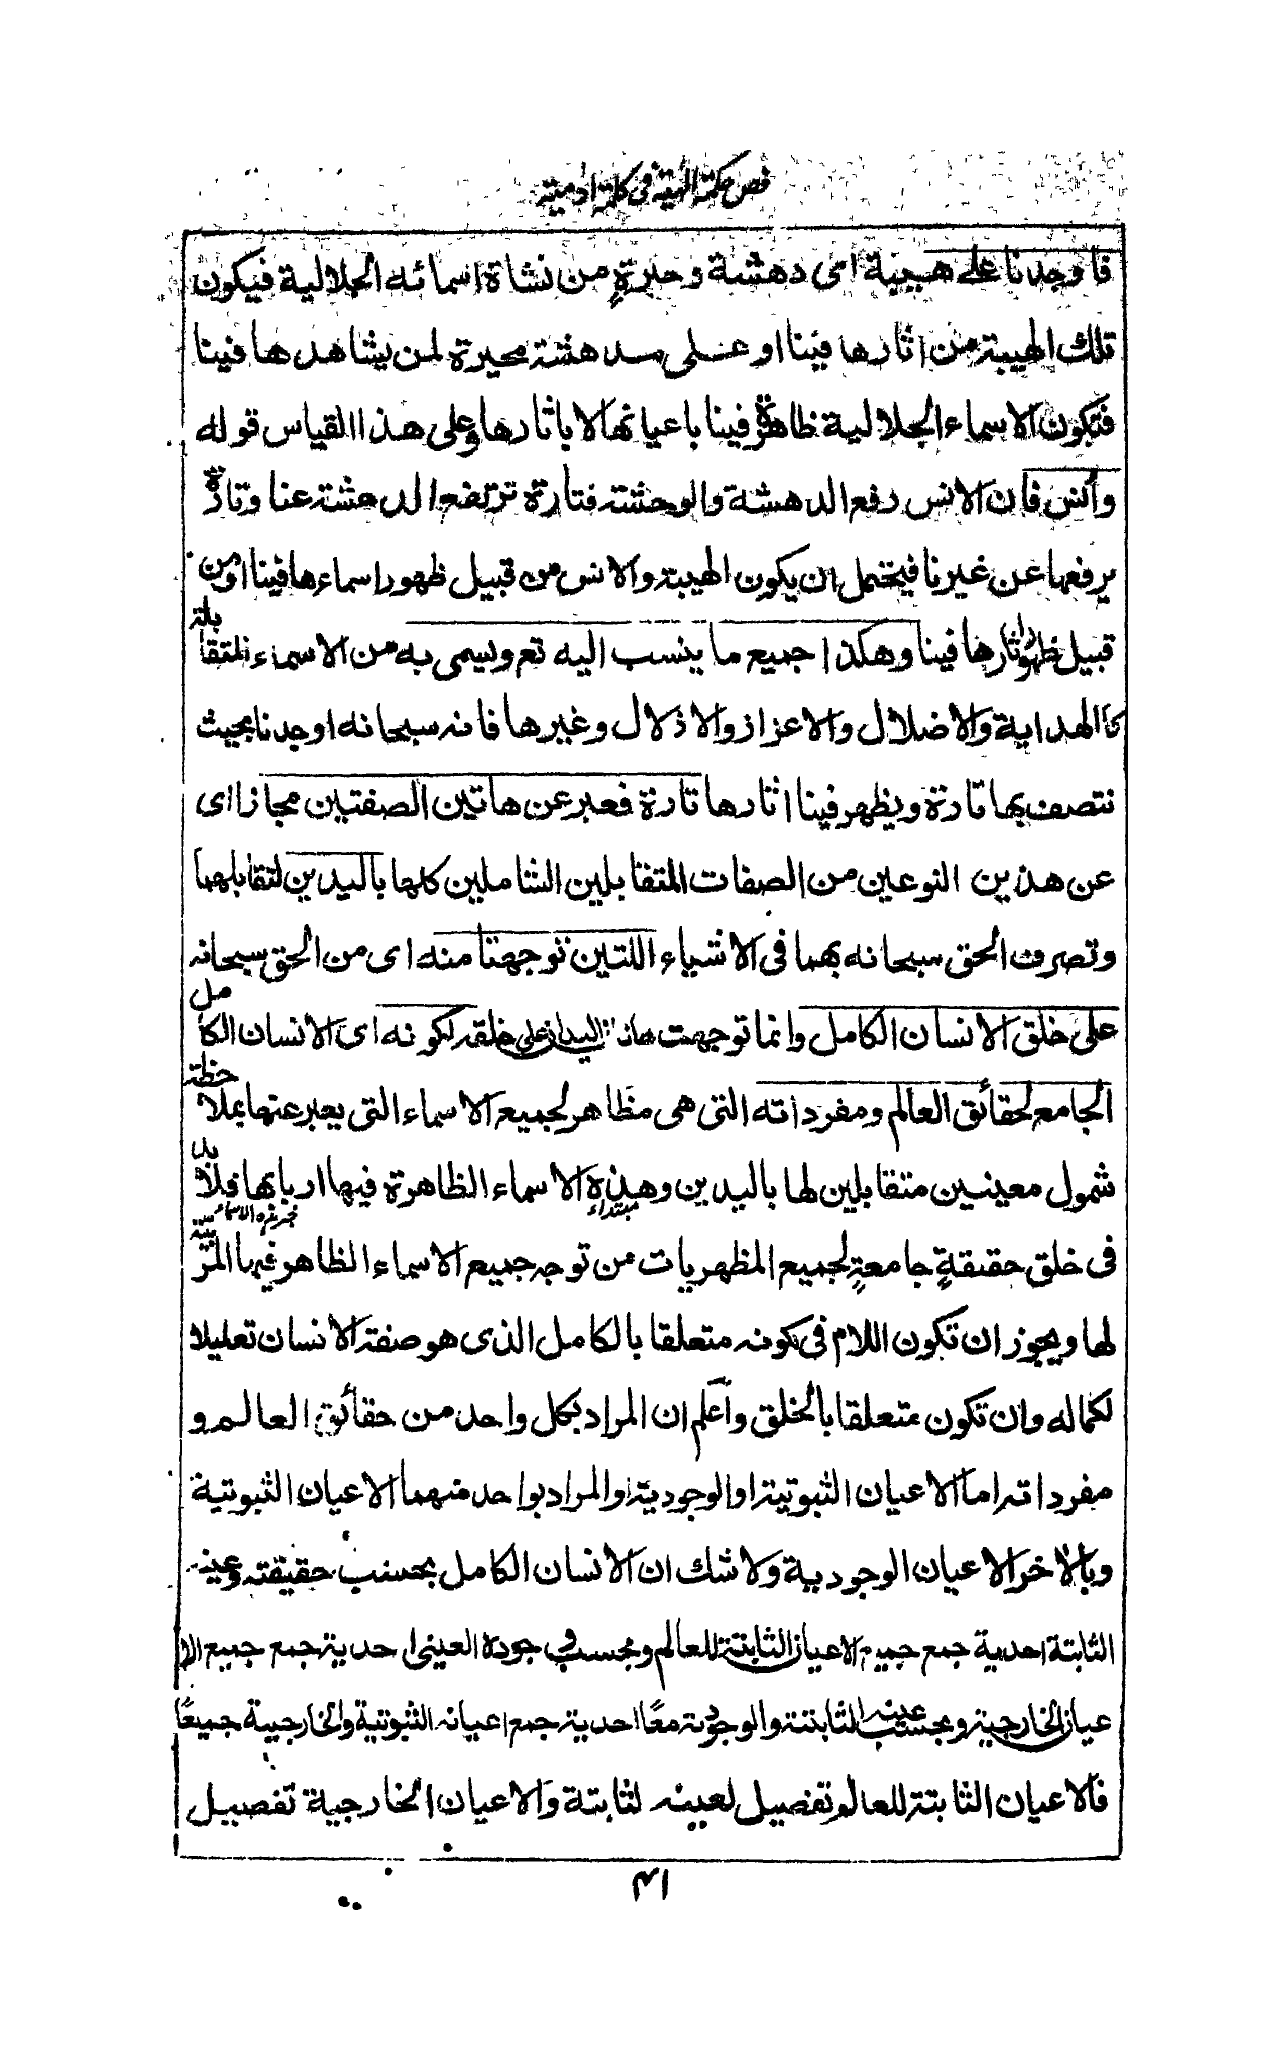 فص حكمة الهية فى كلمة ادمية
فاوجدنا على هيبة اى دهشة وحيرةٍ من نشاة اسمائه الجلالية فيكون
تلك الهيبة من اثارها فينا او على مدهشة محيرة لمن يشاهدها فينا
فتكون الاسماء الجلالية ظاهرة فينا باعيانها لا باثارها وعلى هذا القياس قوله
وأنس فان الانس رفع الدهشة والوحشة فتارة ترتفع الدهشة عنا وتارة
يرفعها عن غيرنا فيحتمل ان يكون الهيبة والانس من قبيل ظهور اسماءها فينا او من
قبيل ظهور اثارها فينا وهكذا جميع ما ينسب اليه تع ويسمى به من الاسماء المتقابلة
كا الهداية والاضلال والاعزاز والاذلال وغيرها فانه سبحانه اوجدنا بحيث
نتصف بها تارة ويظهر فينا اثارها تارة فعبر عن هاتين الصفتين مجازا اى
عن هذين النوعين من الصفات المتقابلين الشاملين كلها باليدين لتقابلهما
وتصرف الحق سبحانه بهما فى الاشياء اللتين توجهتا منه اى من الحق سبحانه
على خلق الانسان الكامل وانما توجهت هاتان اليدان على خلقه لكونه اى الانسان الكامل
الجامع لحقائق العالم ومفرداته التى هى مظاهر لجميع الاسماء التى يعبر عنها بملاحظة
شمول معينين متقابلين لها باليدين وهذه الاسماء الظاهرة فيها اربابها فلا بد
مبتداء خبر هذه الاسماء
فى خلق حقيقةٍ جامعةٍ لجميع المظهريات من توجه جميع الاسماء الظاهر فيها المرتبية
لها ويجوز ان تكون اللام فى كونه متعلقا بالكامل الذى هو صفة الانسان تعليلا
لكماله وان تكون متعلقا بالخلق وآعلم ان المراد بكل واحد من حقائق العالم و
مفرداته اما الاعيان الثبوتية او الوجودية او المراد بواحد منهما الاعيان الثبوتية
وبالاخر الاعيان الوجودية ولا شك ان الانسان الكامل بحسب حقيقته وعينه
الثابتة احدية جمع جميع الاعيان الثابتة للعالم وبحسب وجوده العينى احدية جمع جميع الا
عيان الخارجية وبحسب عينه الثابتة والوجودية معًا احدية جمع اعيانه الثبوتية والخارجية جميعًا
فالاعيان الثابتة للعالم تفصيل لعينه لثابتة والاعيان الخارجية تفصيل